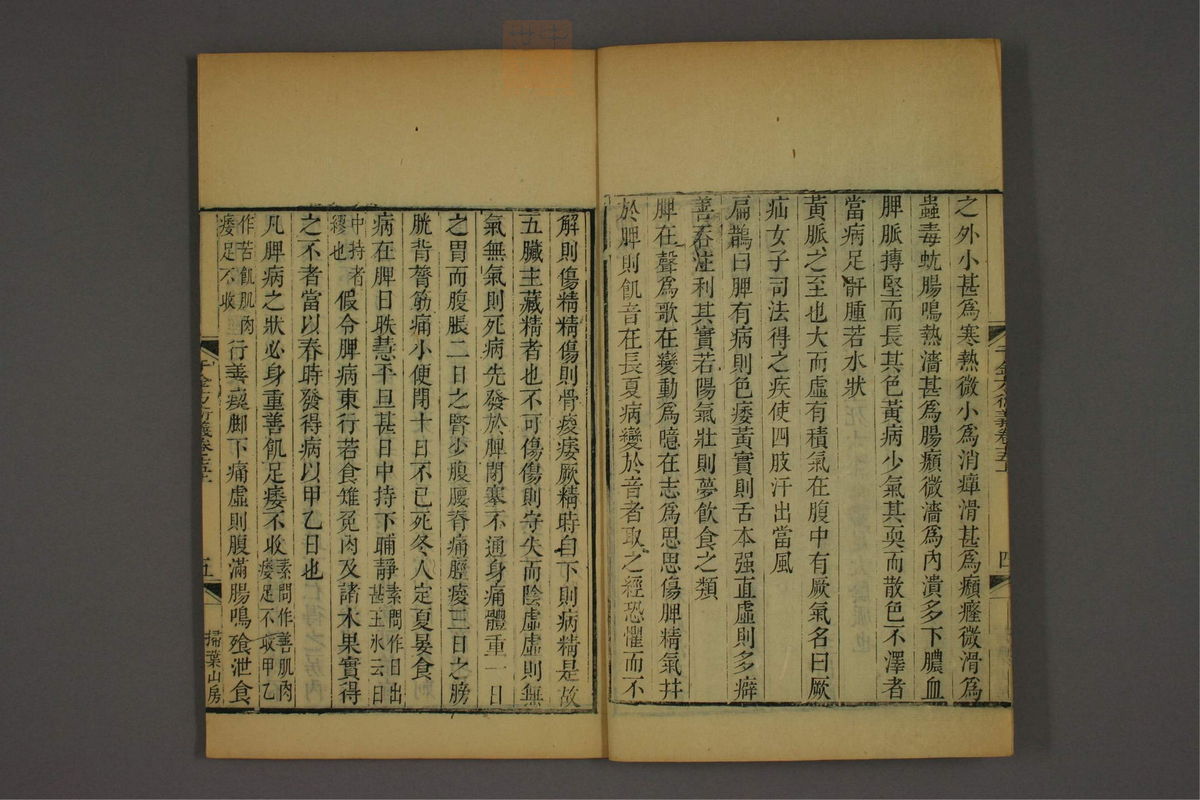 之外小甚爲寒熱微小爲消癉滑甚爲㿗癃微滑爲
蟲毒蚘腸鳴熱濇甚爲腸㿗微濇爲內潰多下膿血
脾脈搏堅而長其色黃病少氣其耎而散色不澤者
當病足骭腫若水狀
黃脈之至也大而虛有積氣在腹中有厥氣名曰厥
疝女子同法得之疾使四肢汗出當風
扁鵲曰脾有病則色痿黃實則舌本强直虛則多癖
善吞注利其實若陽氣壯則夢飲食之類
脾在聲爲歌在變動爲噫在志爲思思傷脾精氣并
於脾則飢音在長夏病變於音者取之經恐懼而不
千金方衍義卷五上
四
解則傷精精傷則骨痠痿厥精時自下則病精是故
五臟主藏精者也不可傷傷則守失而陰虛虛則無
氣無氣則死病先發於脾閉塞不通身痛體重一日
之胃而腹脹二日之腎少腹腰脊痛脛痠三日之膀
胱背膂筋痛小便閉十日不已死冬人定夏晏食
病在脾日昳慧平旦甚日中持下晡靜素問作日出甚王氷云日
中持者繆也假令脾病東行若食雉兔肉及諸木果實得
之不者當以春時發得病以甲乙日也
凡脾病之狀必身重善飢足痿不收素問作善肌肉痿足不收甲乙
作苦飢肌肉痿足不收行善瘈脚下痛虛則腹滿腸鳴飱泄食
千金方衍義卷五上
五
掃葉山房